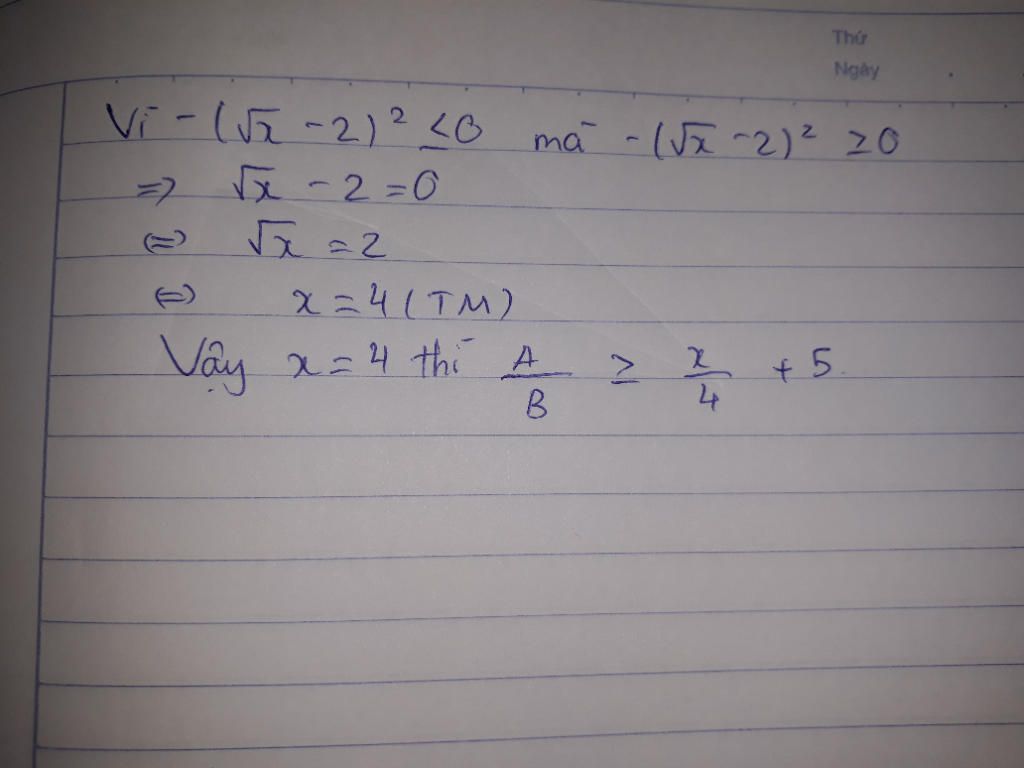 Thứ
Ngày
Vì - (√x - 2)² ≤ 0 mà - (√x - 2)² ≥ 0
=> √x - 2 = 0
<=> √x = 2
<=> x = 4 (TM)
Vậy x = 4 thì A/B ≥ x/4 + 5